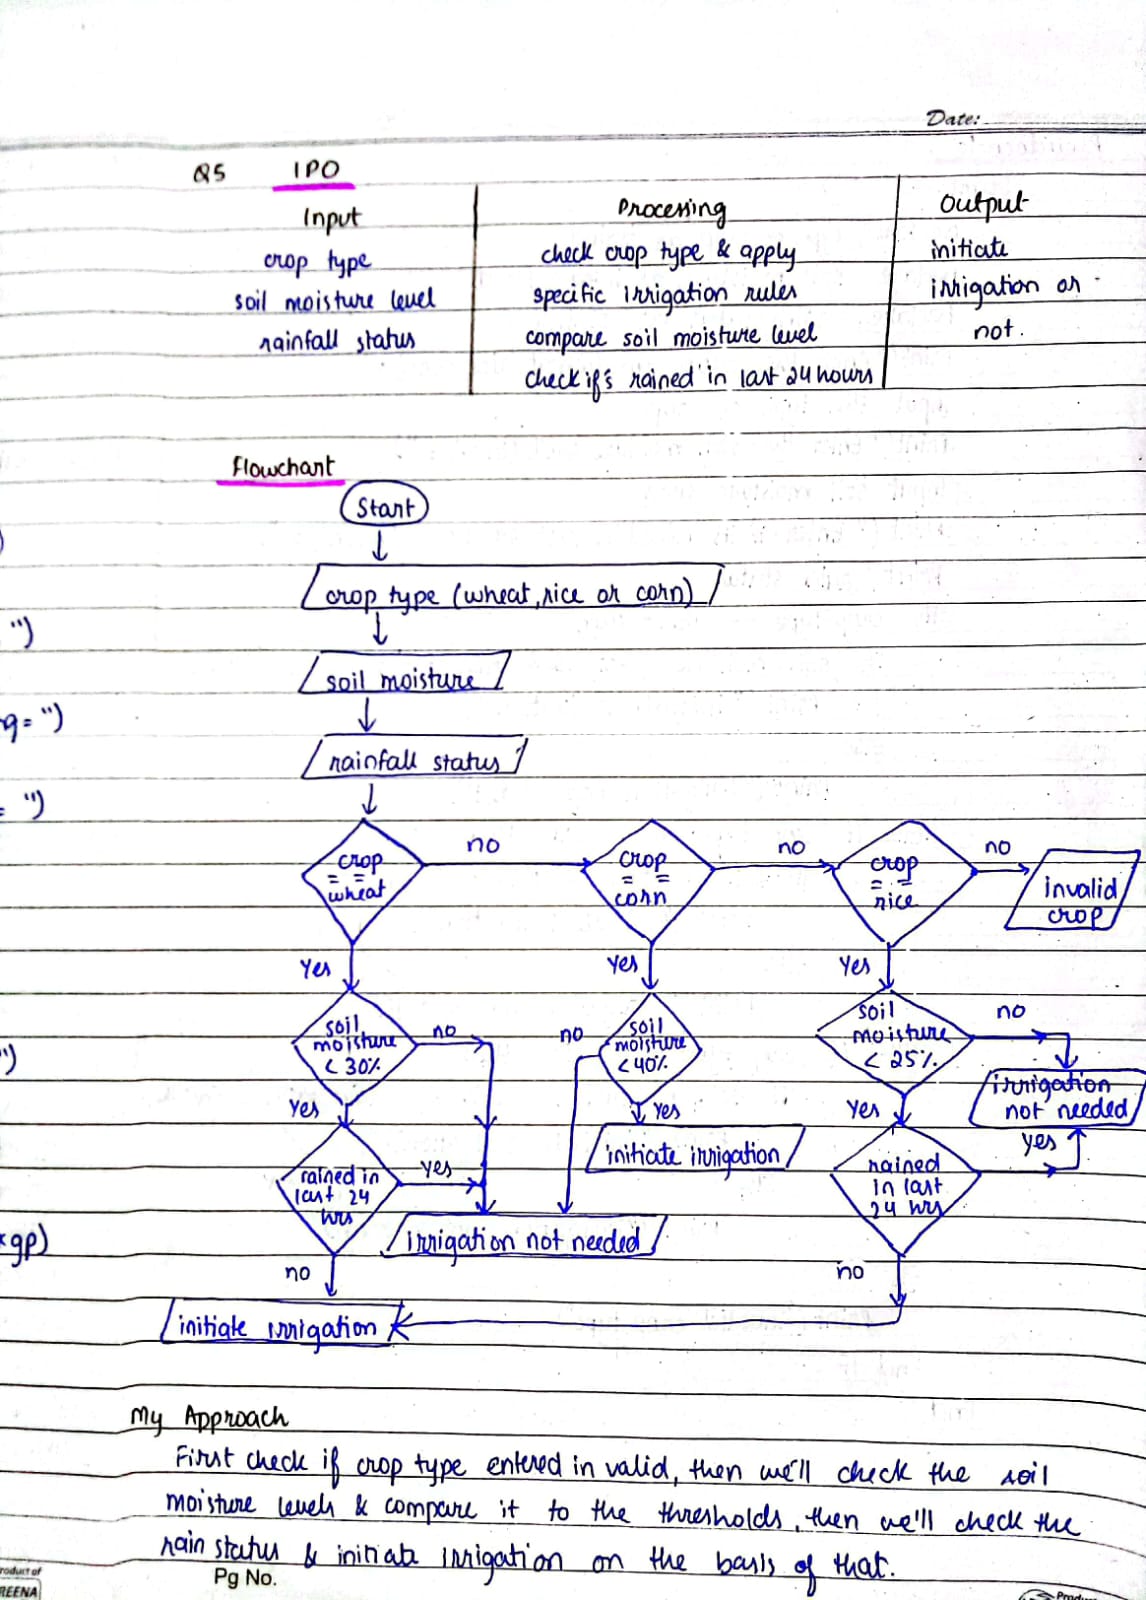 Date:
Q5 IPO
Input Processing Output
crop type check crop type & apply initiate
soil moisture level specific irrigation rules irrigation or
rainfall status compare soil moisture level not.
check if's rained in last 24 hours
Flowchart
Start
crop type (wheat, rice or corn)
")
soil moisture
g = ")
rainfall status
= ")
no no no
crop == wheat
crop == corn
crop == rice
invalid
crop
Yes Yes Yes
soil moisture < 30%
no
no
soil moisture < 40%
soil moisture < 25%
no
")
irrigation
not needed
Yes Yes Yes
yes
initiate irrigation
rained in last 24 hrs
yes
rained in last 24 hrs
gp)
irrigation not needed
no no
initiate irrigation
My Approach
First check if crop type entered in valid, then we'll check the soil
moisture levels & compare it to the thresholds, then we'll check the
rain status & initiate irrigation on the basis of that.
Pg No.
roduct of
REENA
Produ